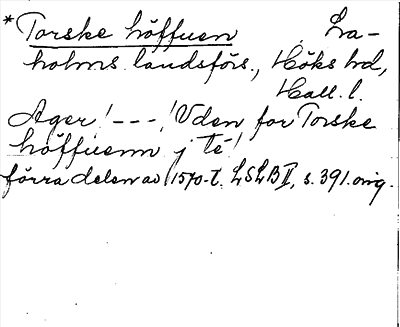 *Torske höffuen, La-
holms landsförs., Höks hd,
Hall. l.
Ager! ---! Uden for Torske
höffuenn j té!
förra delen av 1570-t. LSLB II, s. 391. orig.